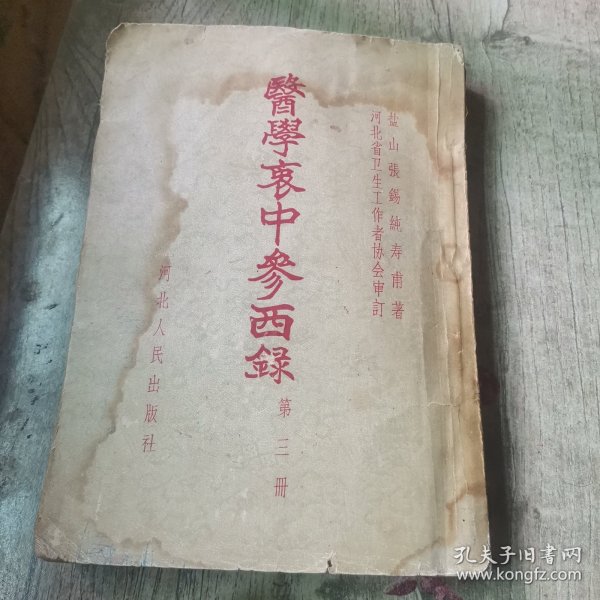 盐山張錫純寿甫著
河北省卫生工作者协会审訂
醫學衷中參西録
第三册
河北人民出版社
孔夫子旧书网
www.kongfz.com